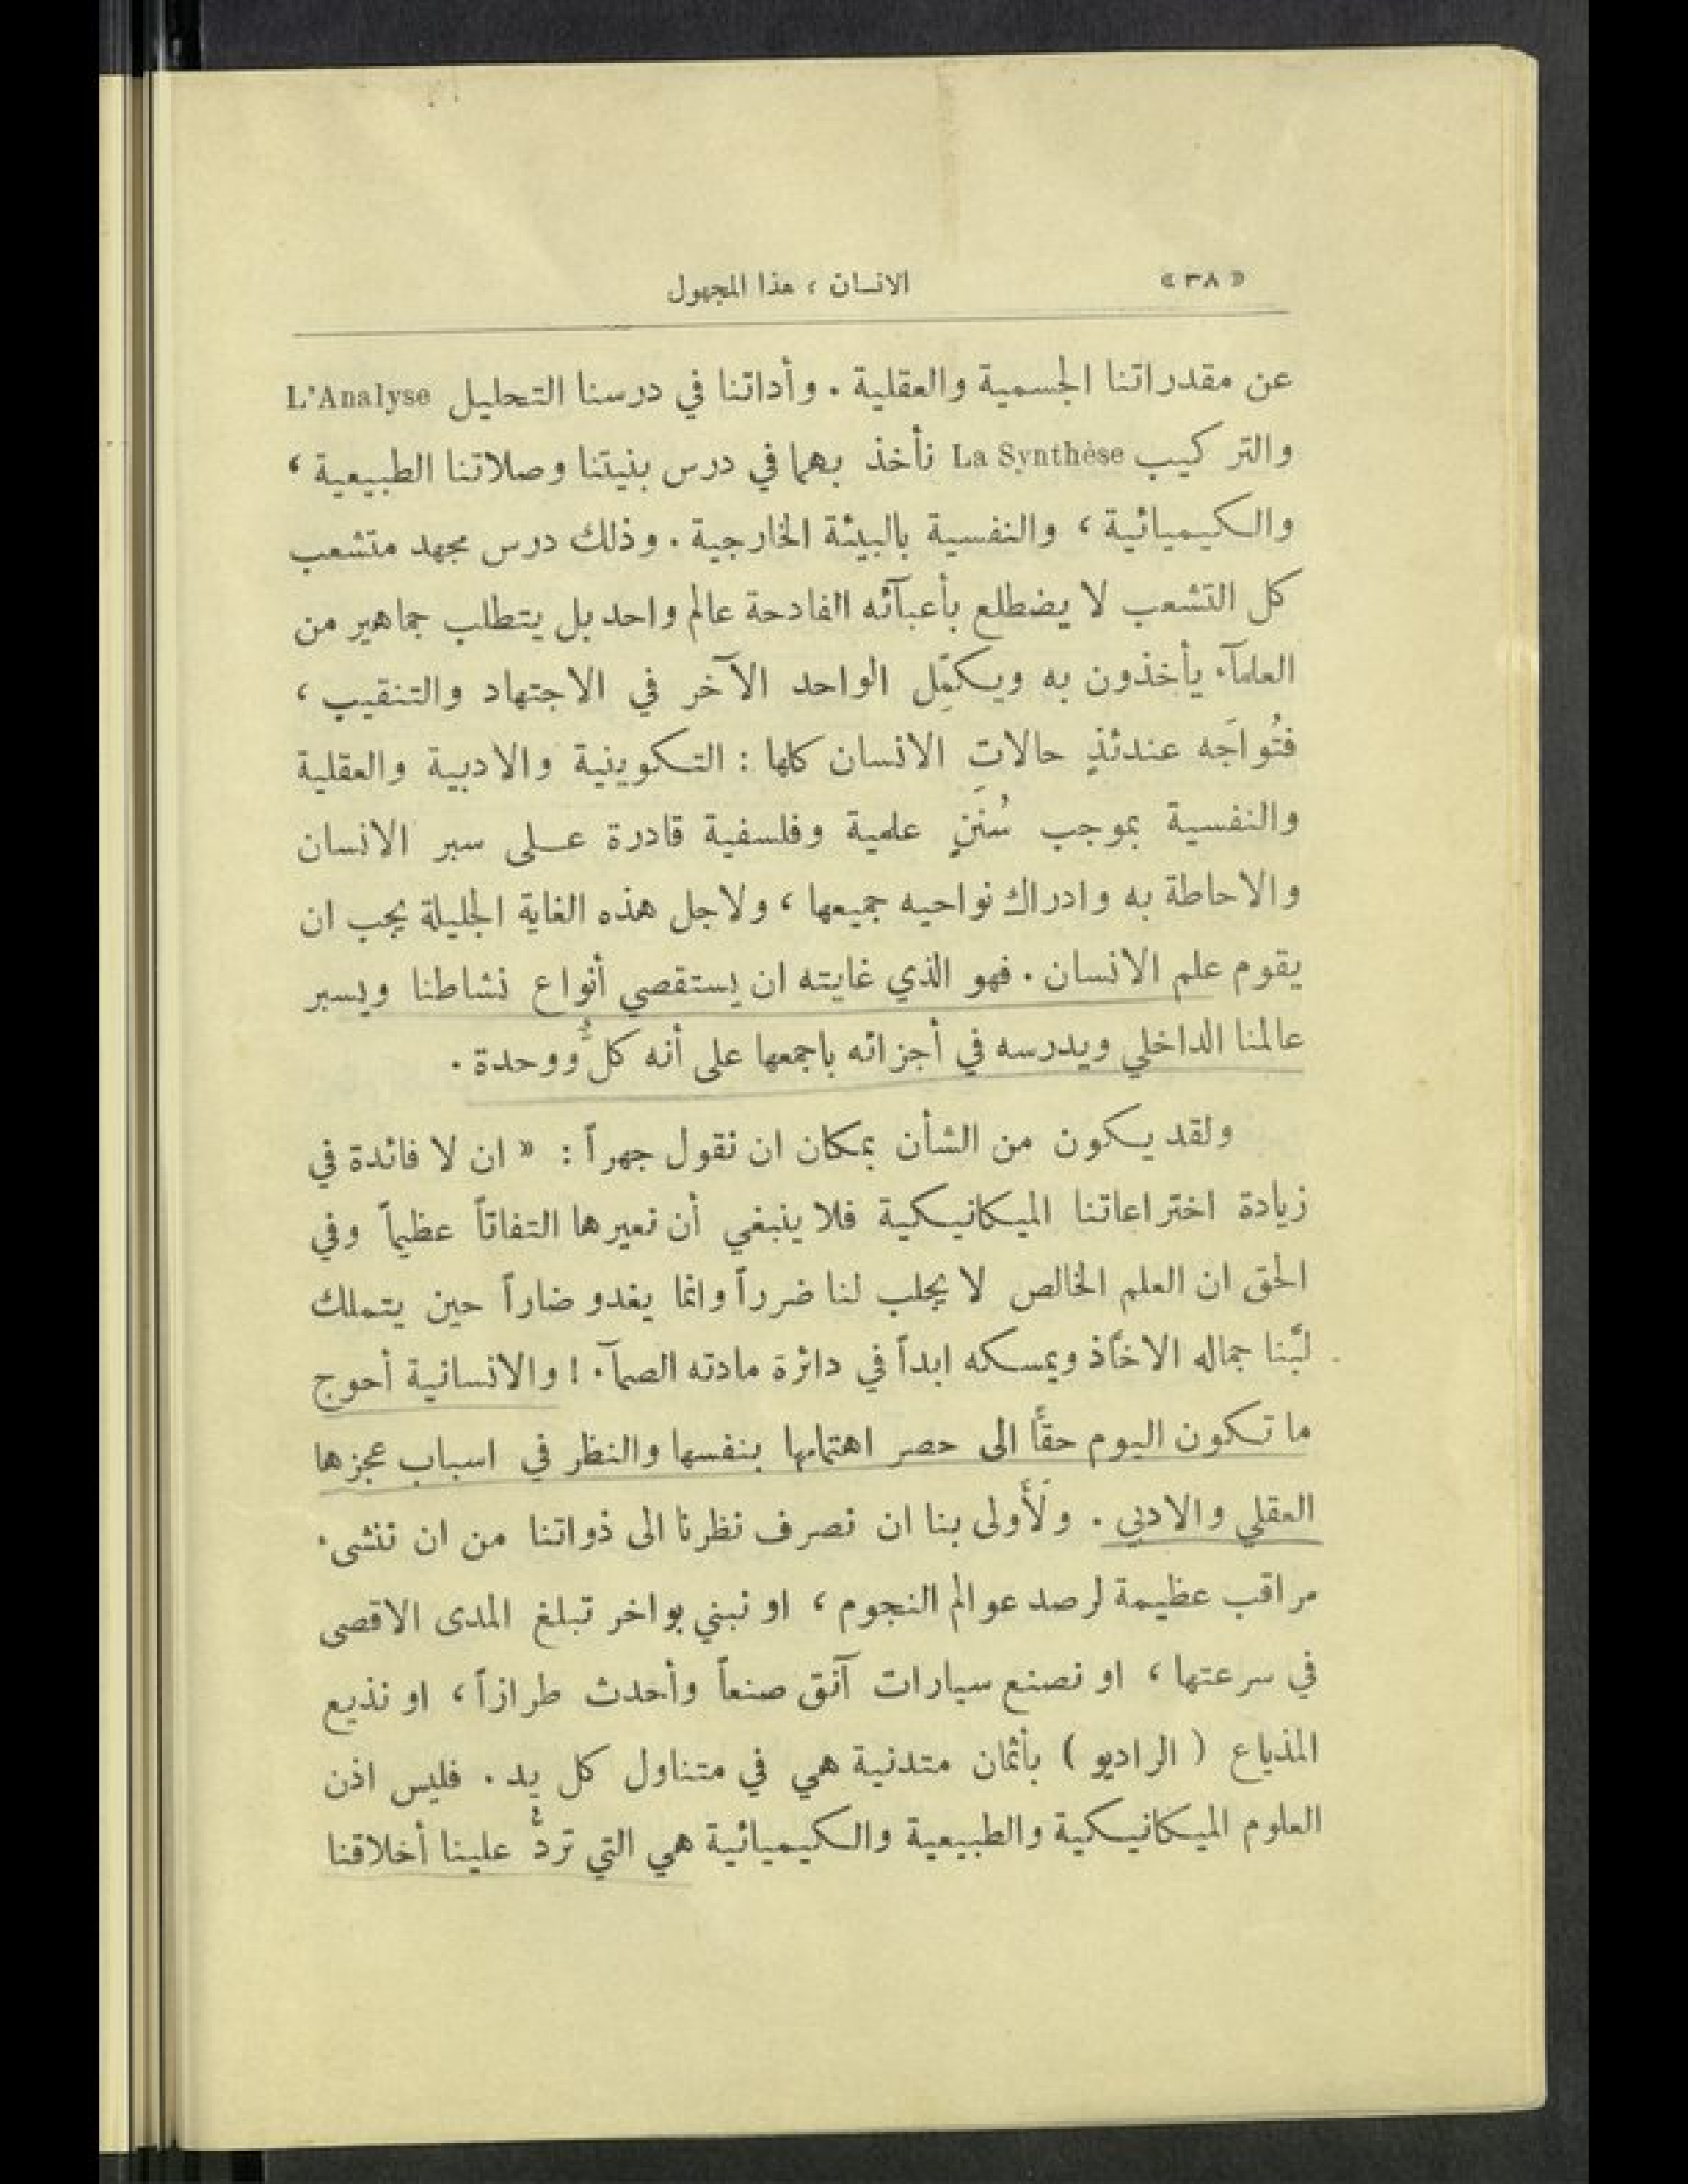 « ٣٨ » الانسان ، هذا المجهول
عن مقدراتنا الجسمية والعقلية . وأداتنا في درسنا التحليل L'Analyse
والتركيب La Synthèse نأخذ بهما في درس بنيتنا وصلاتنا الطبيعية ،
والكيميائية ، والنفسية بالبيئة الخارجية . وذلك درس مجهد متشعب
كل التشعب لا يضطلع بأعبآئه الفادحة عالم واحد بل يتطلب جماهير من
العلمآء يأخذون به ويكمِّل الواحد الآخر في الاجتهاد والتنقيب ،
فتُواجَه عندئذٍ حالات الانسان كلها : التكوينية والادبية والعقلية
والنفسية بموجب سُنَنٍ علمية وفلسفية قادرة على سبر الانسان
والاحاطة به وادراك نواحيه جميعها ، ولاجل هذه الغاية الجليلة يجب ان
يقوم علم الانسان . فهو الذي غايته ان يستقصي أنواع نشاطنا ويسبر
عالمنا الداخلي ويدرسه في أجزائه باجمعها على أنه كلٌّ ووحدة .
ولقد يكون من الشأن بمكان ان نقول جهراً : « ان لا فائدة في
زيادة اختراعاتنا الميكانيكية فلا ينبغي أن نعيرها التفاتاً عظيماً وفي
الحق ان العلم الخالص لا يجلب لنا ضرراً وانما يغدو ضاراً حين يتملك
لبَّنا جماله الاخَّاذ ويمسكه ابداً في دائرة مادته الصمآء ! والانسانية أحوج
ما تكون اليوم حقًّا الى حصر اهتمامها بنفسها والنظر في اسباب عجزها
العقلي والادبي . ولَأَولى بنا ان نصرف نظرنا الى ذواتنا من ان ننشىء
مراقب عظيمة لرصد عوالم النجوم ، او نبني بواخر تبلغ المدى الاقصى
في سرعتها ، او نصنع سيارات آنق صنعاً وأحدث طرازاً ، او نذيع
المذياع ( الراديو ) بأثمان متدنية هي في متناول كل يد . فليس اذن
العلوم الميكانيكية والطبيعية والكيميائية هي التي تردُّ علينا أخلاقنا